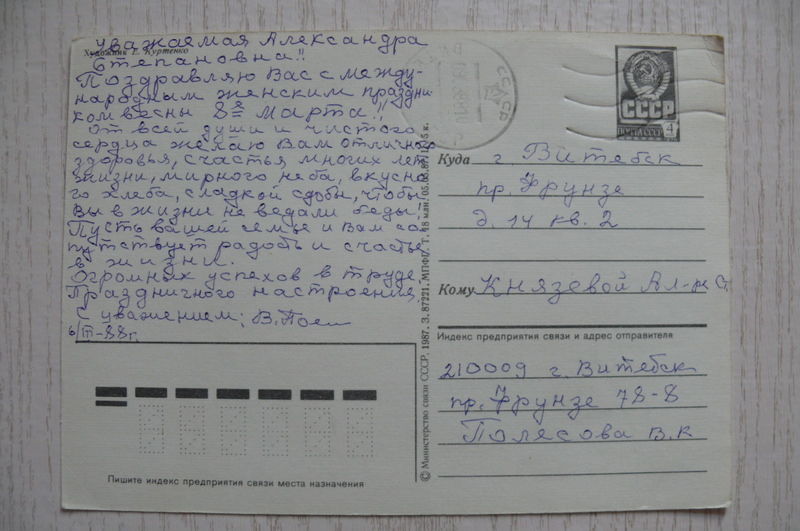 Художник Г. Куртенко
Уважаемая Александра
Степановна!!
Поздравляю Вас с между-
народным женским праздни-
ком весны 8е Марта!!
От всей души и чистого
сердца желаю Вам отличного
здоровья, счастья многих лет
жизни, мирного неба, вкусно-
го хлеба, сладкой сдобы, чтобы
Вы в жизни не ведали беды!
Пусть вашей семье и Вам со
путствует радость и счастье
в жизни.
Огромных успехов в труде,
Праздничного настроения,
С уважением: В.
6/III-88г.
Пишите индекс предприятия связи места назначения
© Министерство связи СССР, 1987. З. 87221. МПФГ. Т. 05.06.87.
СССР
ПОЧТА СССР 4
Куда г. Витебск
пр. Фрунзе
д. 14 кв. 2
Кому Князевой Ал-ре Ст
Индекс предприятия связи и адрес отправителя
210009 г. Витебск
пр. Фрунзе 78-8
Полясова В.К